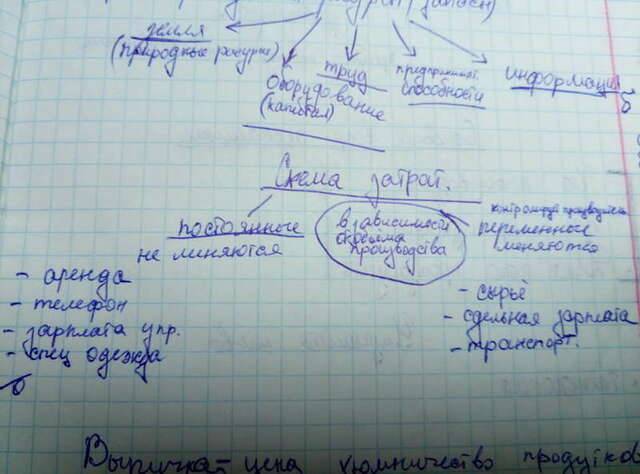 земля
(природные ресурсы)
оборудование
(капитал)
труд
предпринимат.
способности
информация
Схема затрат.
постоянные
не меняются
в зависимости
от объёма
производства
контролирует производитель
переменные
меняются
- аренда
- телефон
- зарплата упр.
- спец одежда
- сырьё
- сдельная зарплата
- транспорт.
Выручка - цена х количество продукции